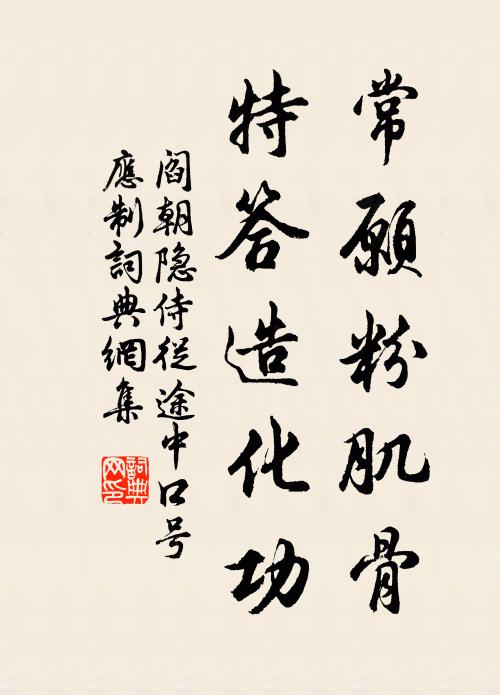 常願粉肌骨
特答造化功
閻朝隐侍従途中口号
應制詞典網集
詞典网印